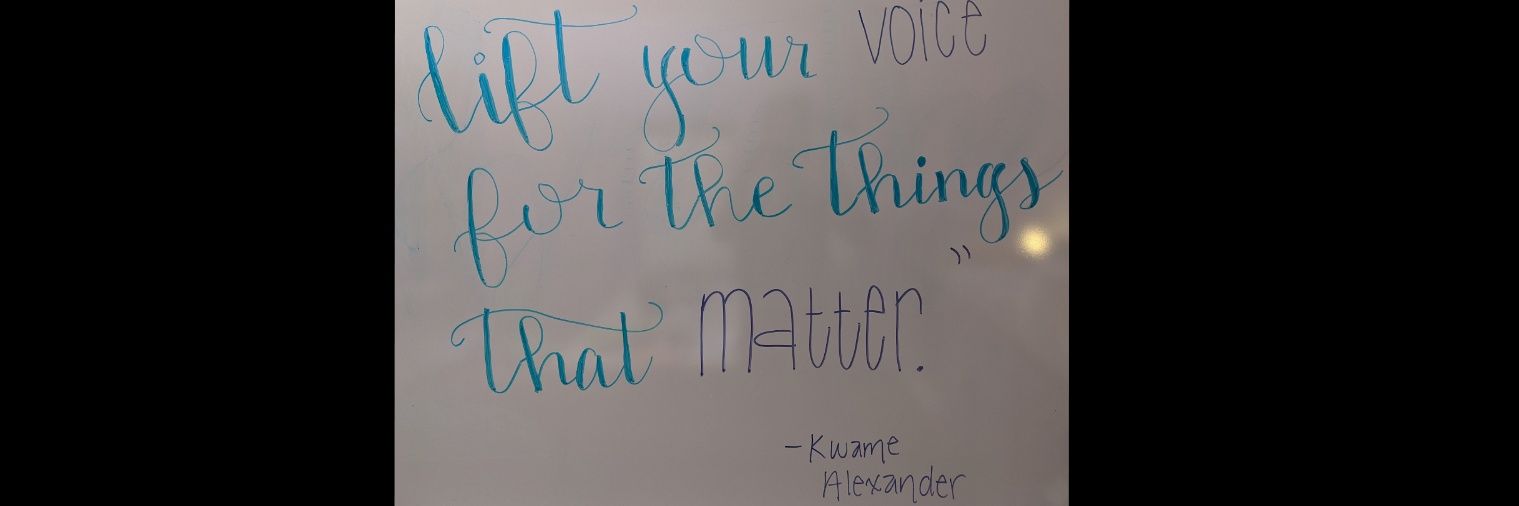 lift your voice
for the things
that matter."
-Kwame
Alexander